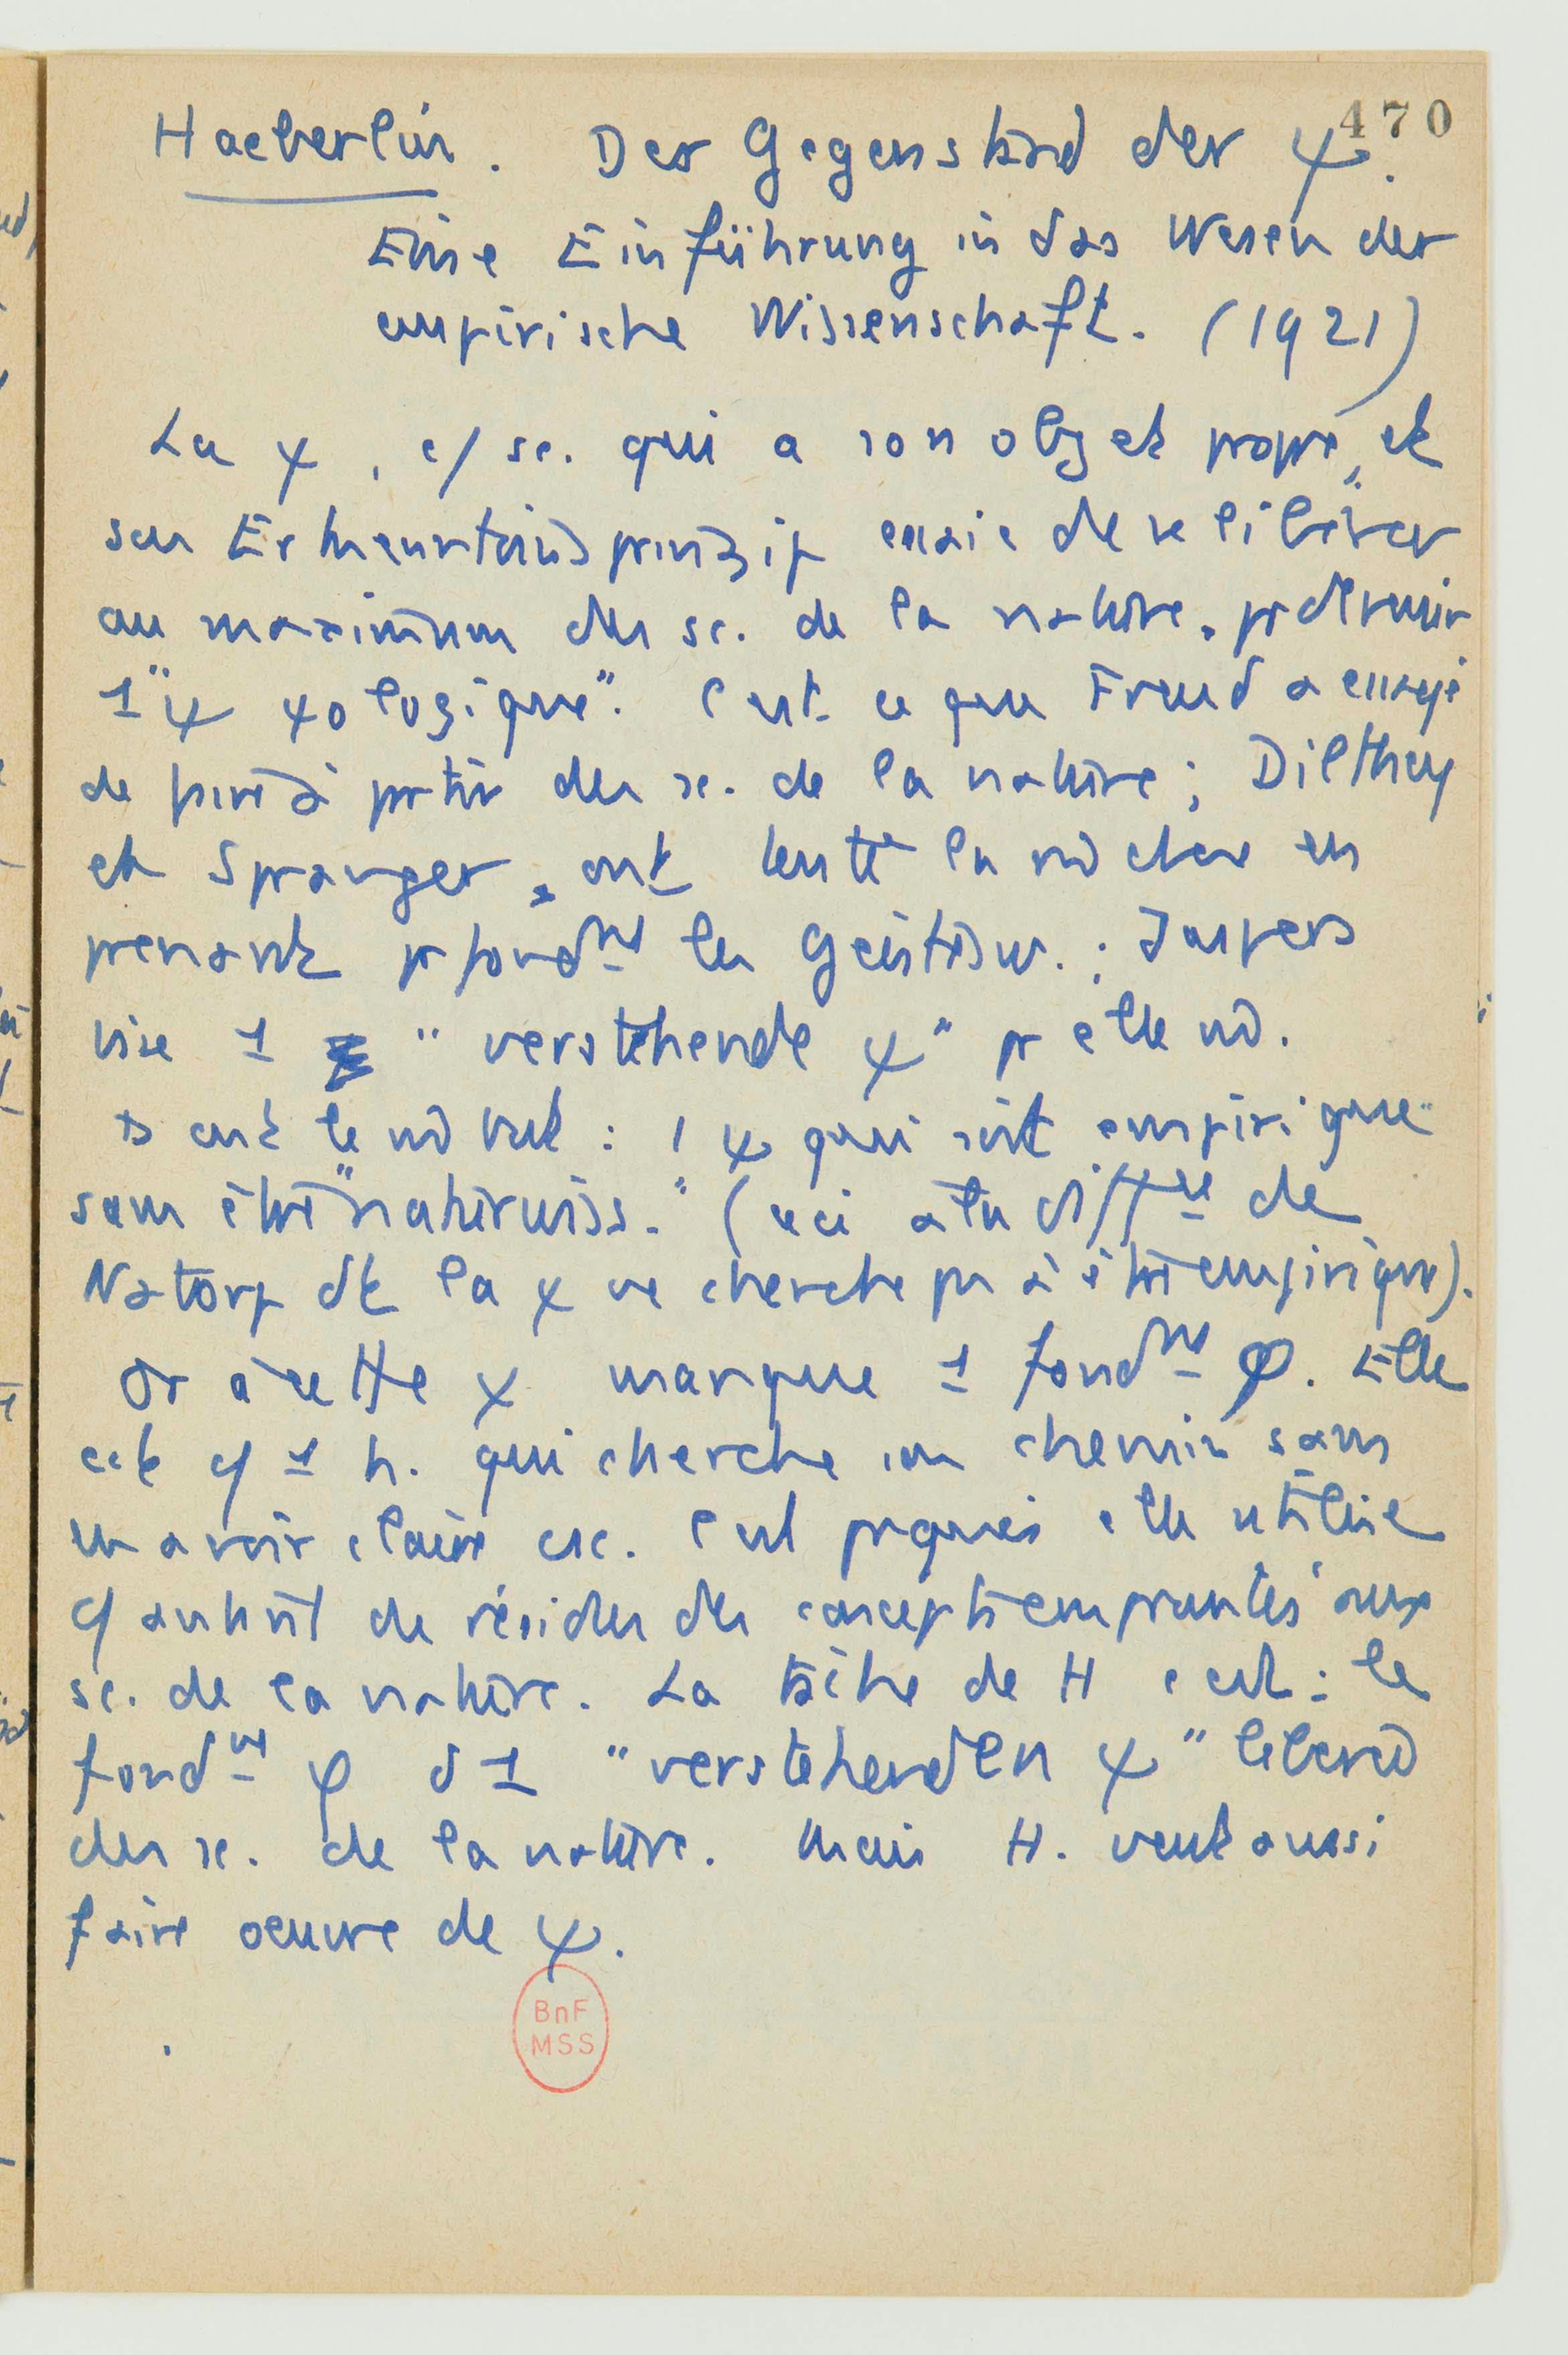 470
Haeberlin. Der Gegenstand der ψ.
Eine Einführung in das Wesen der
empirische Wissenschaft. (1921)
La ψ, c/ sc. qui a son objet propre, et
son Erkenntnisprinzip essaie de se libérer
au maximum des sc. de la nature, pr devenir
1 "ψ ψologique". C'est ce que Freud a essayé
de faire à partir des sc. de la nature ;  Dilthey
et Spranger, ont tenté la md chose en
prenant pr fondmt les Geistesw. ; Jaspers
vise 1 "verstehende ψ" pr elle md.
Ts ont le md but : 1 ψ qui soit "empirique"
sans être "naturwiss." (ceci à la différence de
Natorp dt la ψ ne cherche pas à être empirique).
Or à cette ψ manque 1 fondmt φ. Elle
est c/ 1 h. qui cherche son chemin sans
en avoir claire csc. C'est pourquoi elle utilise
c/ autant de résidus des concepts empruntés aux
sc. de la nature. La tâche de H c'est : le
fondmt φ d 1 "verstehenden ψ" libérée
des sc. de la nature. Mais H. veut aussi
faire oeuvre de ψ.
BnF
MSS